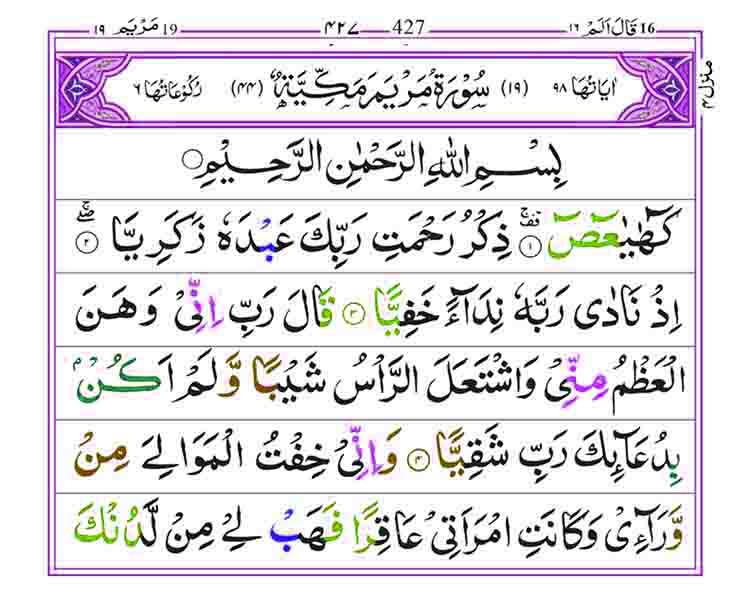 16 قَالَ اَلَمْ ١٦ 427 ٤٢٧ 19 مَرْيَم ١٩
منزل ۴
اٰيَاتُهَا ٩٨ (١٩) سُوْرَةُ مَرْيَمَ مَكِّيَّةٌ (٤٤) رُكُوْعَاتُهَا ٦
بِسْمِ اللّٰهِ الرَّحْمٰنِ الرَّحِيْمِ
كٓهٰيٰعٓصٓ ۚ ١ ذِكْرُ رَحْمَتِ رَبِّكَ عَبْدَهٗ زَكَرِيَّا ۖۚ ٢
اِذْ نَادٰى رَبَّهٗ نِدَآءً خَفِيًّا ٣ قَالَ رَبِّ اِنِّىْ وَهَنَ
الْعَظْمُ مِنِّىْ وَاشْتَعَلَ الرَّاْسُ شَيْبًا وَّلَمْ اَكُنْۢ
بِدُعَآئِكَ رَبِّ شَقِيًّا ٤ وَاِنِّىْ خِفْتُ الْمَوَالِىَ مِنْ
وَّرَآءِىْ وَكَانَتِ امْرَاَتِىْ عَاقِرًا فَهَبْ لِىْ مِنْ لَّدُنْكَ